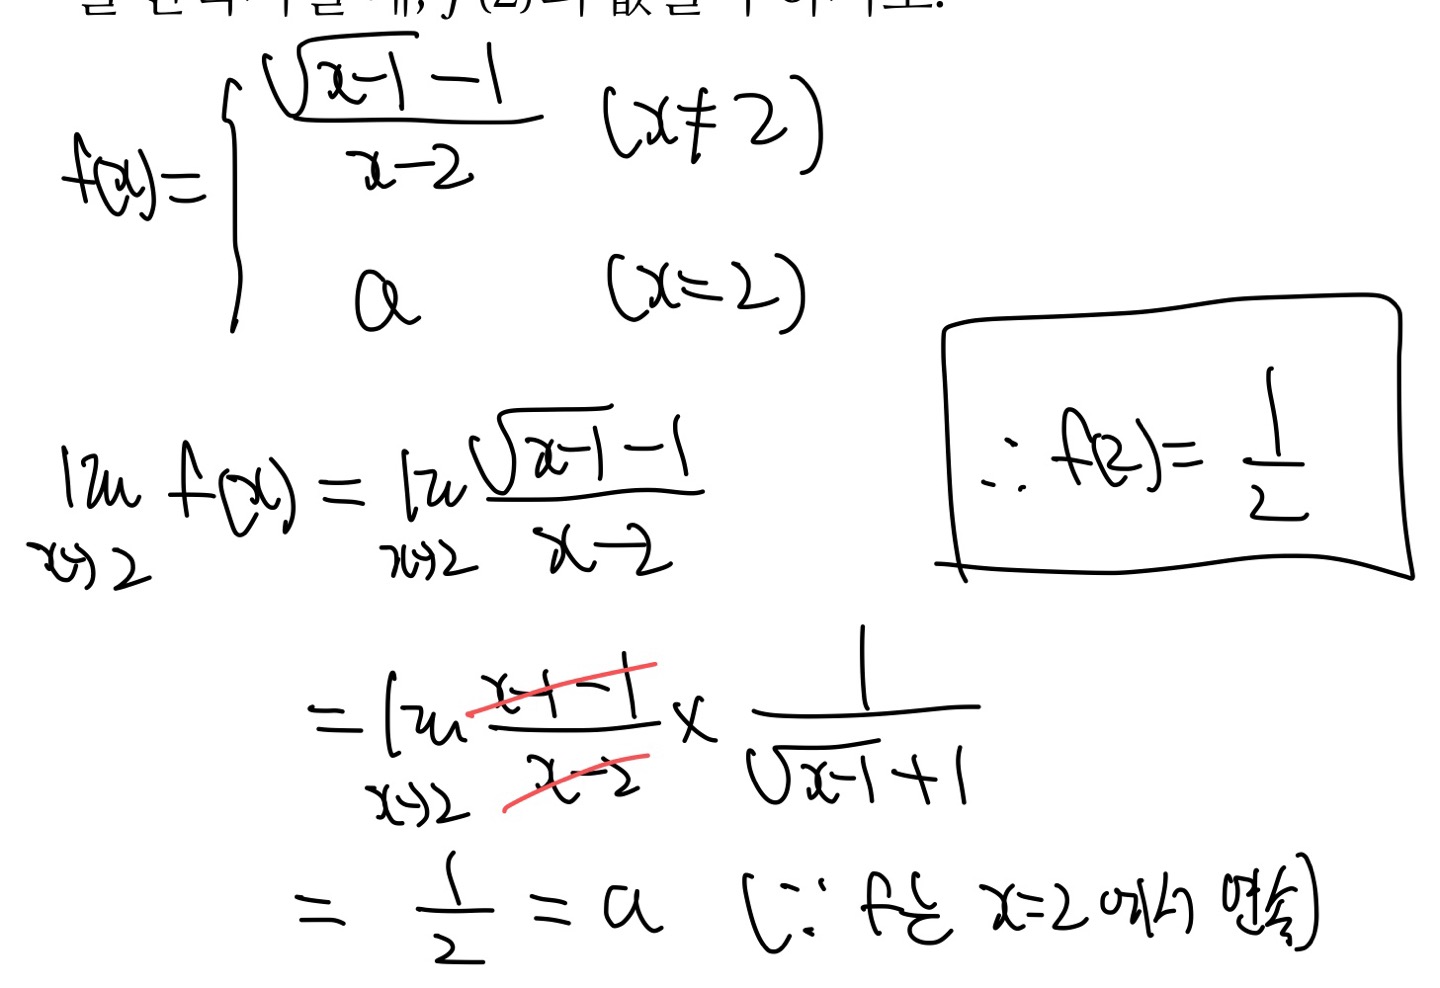 f(2)의 값을 구하시오.
f(x) = { (√(x-1) - 1)/(x-2) (x≠2)
a (x=2)
lim_{x→2} f(x) = lim_{x→2} (√(x-1) - 1)/(x-2)
= lim_{x→2} (x-1-1)/(x-2) × 1/(√(x-1) + 1)
= 1/2 = a (∵ f는 x=2에서 연속)
∴ f(2) = 1/2